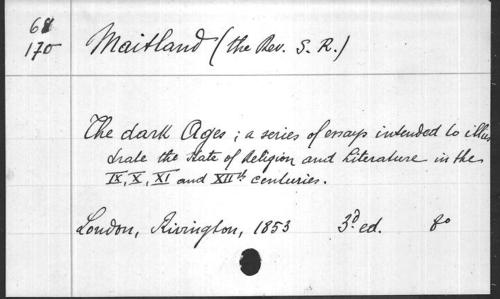 68
170
Maitland (the Rev. S. R.)
The dark Ages; a series of essays intended to illus
trate the state of Religion and Literature in the
IX, X, XI and XIIth centuries.
London, Rivington, 1853 3D ed. 8o